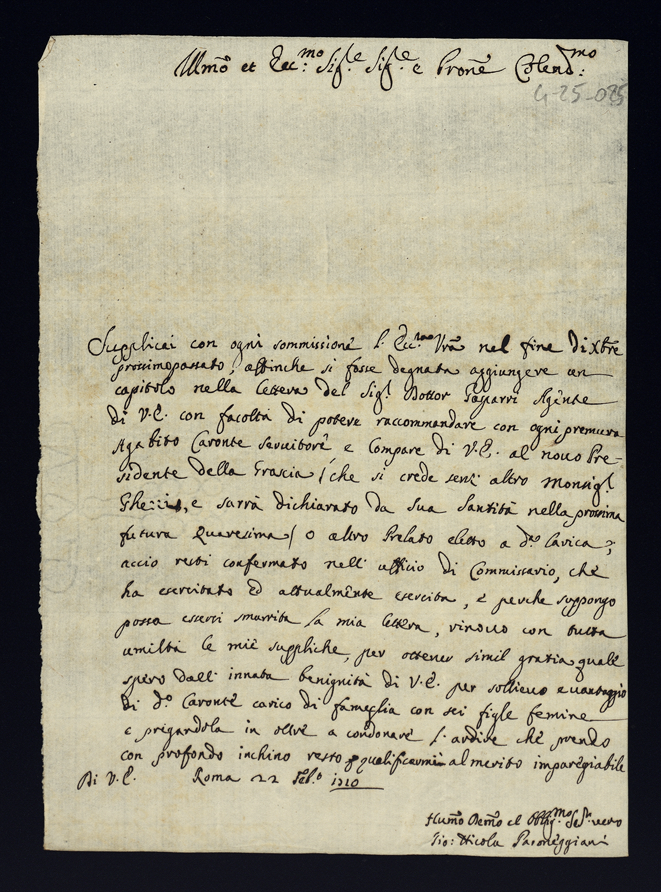 Illmo et Ecc:mo Sigr.e Sigr.e e Prone Colendmo:
4-25-025
Supplicai con ogni sommissione l'Ecc:ma Vra nel fine di Xbre
prossimopassato, affinche si fosse degnata aggiungere un
capitolo nella lettera del Sigr. Dottor Gasparri Agente
di V.E. con facoltà di potere raccommandare con ogni premura
Agabito Caronte servitore e Compare di V.E. al novo Pre-
sidente della Grascia (che si crede senz'altro Monsigr.
e sarrà dichiarato da Sua Santità nella prossima
futura Quaresima) o altro Prelato eletto a do. Carica,
accio resti confermato nell'ufficio di Commissario, che
ha esercitato ed attualmente esercita, e perche suppongo
possa essersi smarrita la mia lettera, rinovo con tutta
umiltà le mie suppliche, per ottener simil gratia quale
spero dall'innata benignità di V.E. per sollievo e vantaggio
di do. Caronte carico di fameglia con sei figle femine
e pregandola in oltre a condonare l'ardire che prendo
con profondo inchino resto qualificarmi al merito impareggiabile
Di V.E. Roma 22 Feb.o 1710
Humo Devmo et Obligmo Ser. vero
Gio: Nicola